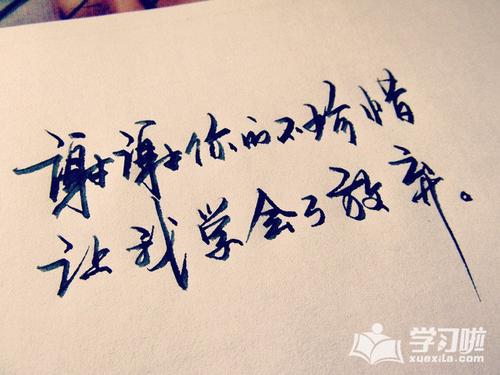 谢谢你的不珍惜
让我学会了放弃。
学习啦
xuexila.com